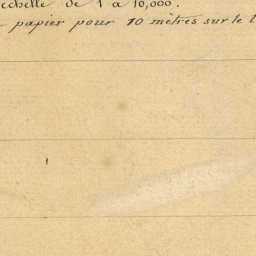 echelle de 1 à 10,000.
papier pour 10 mètres sur le